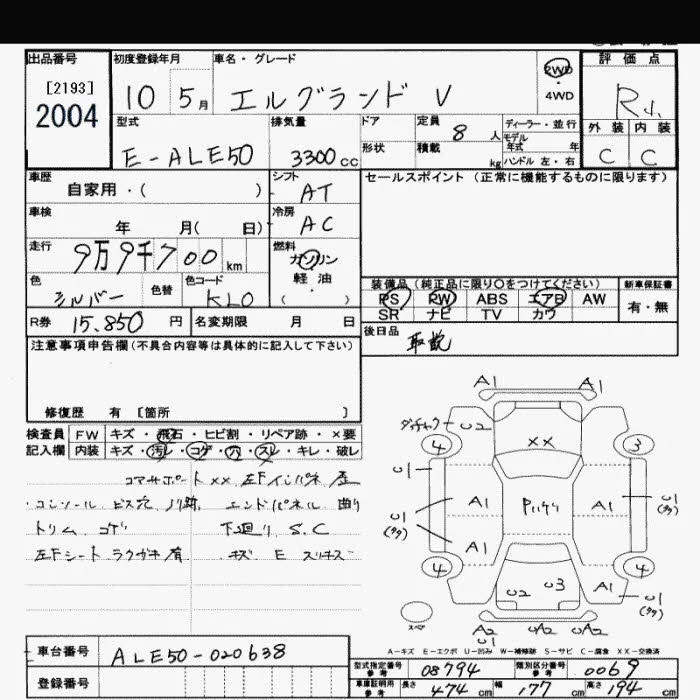 出品番号 初度登録年月 車名・グレード 評価点
[2193] 2004
10 5月 エルグランド V 2WD ・ 4WD R4.
型式 排気量 ドア 定員 8人 ディーラー・並行 外装 内装
E-ALE50 3300cc 形状 積載 kg モデル年式 年 ハンドル 左・右 C C
車歴 自家用・( ) シフト AT セールスポイント(正常に機能するものに限ります)
車検 年 月( 日) 冷房 AC
走行 9万9千700km 燃料 ガソリン・軽油・( )
色 シルバー 色替 色コード KL0
装備品(純正品に限り○をつけてください) 新車保証書
PS PW ABS エアB AW 有・無
SR ナビ TV カワ
R券 15.850円 名変期限 月 日
後日品 取説
注意事項申告欄(不具合内容等は具体的に記入して下さい)
修復歴 有 [箇所 ]
検査員 FW キズ・飛石・ヒビ割・リペア跡・×要
記入欄 内装 キズ・汚レ・コゲ・穴・スレ・キレ・破レ
コアサポート ×× 左Fインパネ 歪
コンソール ビス穴 ノリ跡 エンドパネル 曲り
トリム コゲ 下廻り S.C
左Fシート ラクガキ有 キズ E スリキズ
A1 A1
U2
4 ×× 3
U1 A1 Pいケイ A1 U1
U1 A1
4 4
U2 U3 A1 U1
スペア A2 U1 UA2 A2
A-キズ E-エクボ U-凹み W-補修跡 S-サビ C-腐食 XX-交換済
車台番号 ALE50-020638
登録番号
型式指定番号 参考 08794 類別区分番号 参考 0069
車庫証明用 参考 長さ 474cm 幅 177cm 高さ 194cm